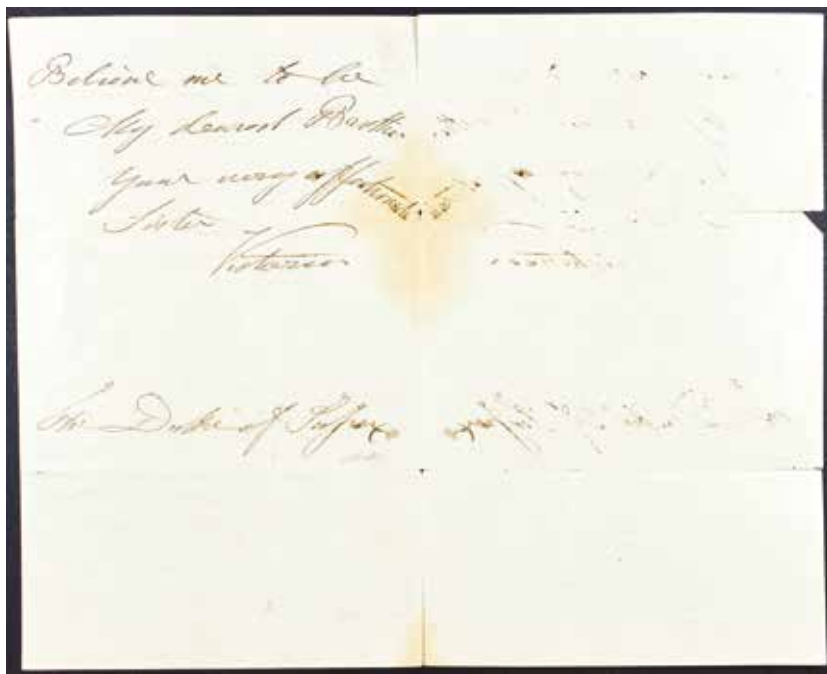 Believe me to be
My dearest Brother
Your very affectionate
Sister
Victoria
The Duke of Sussex